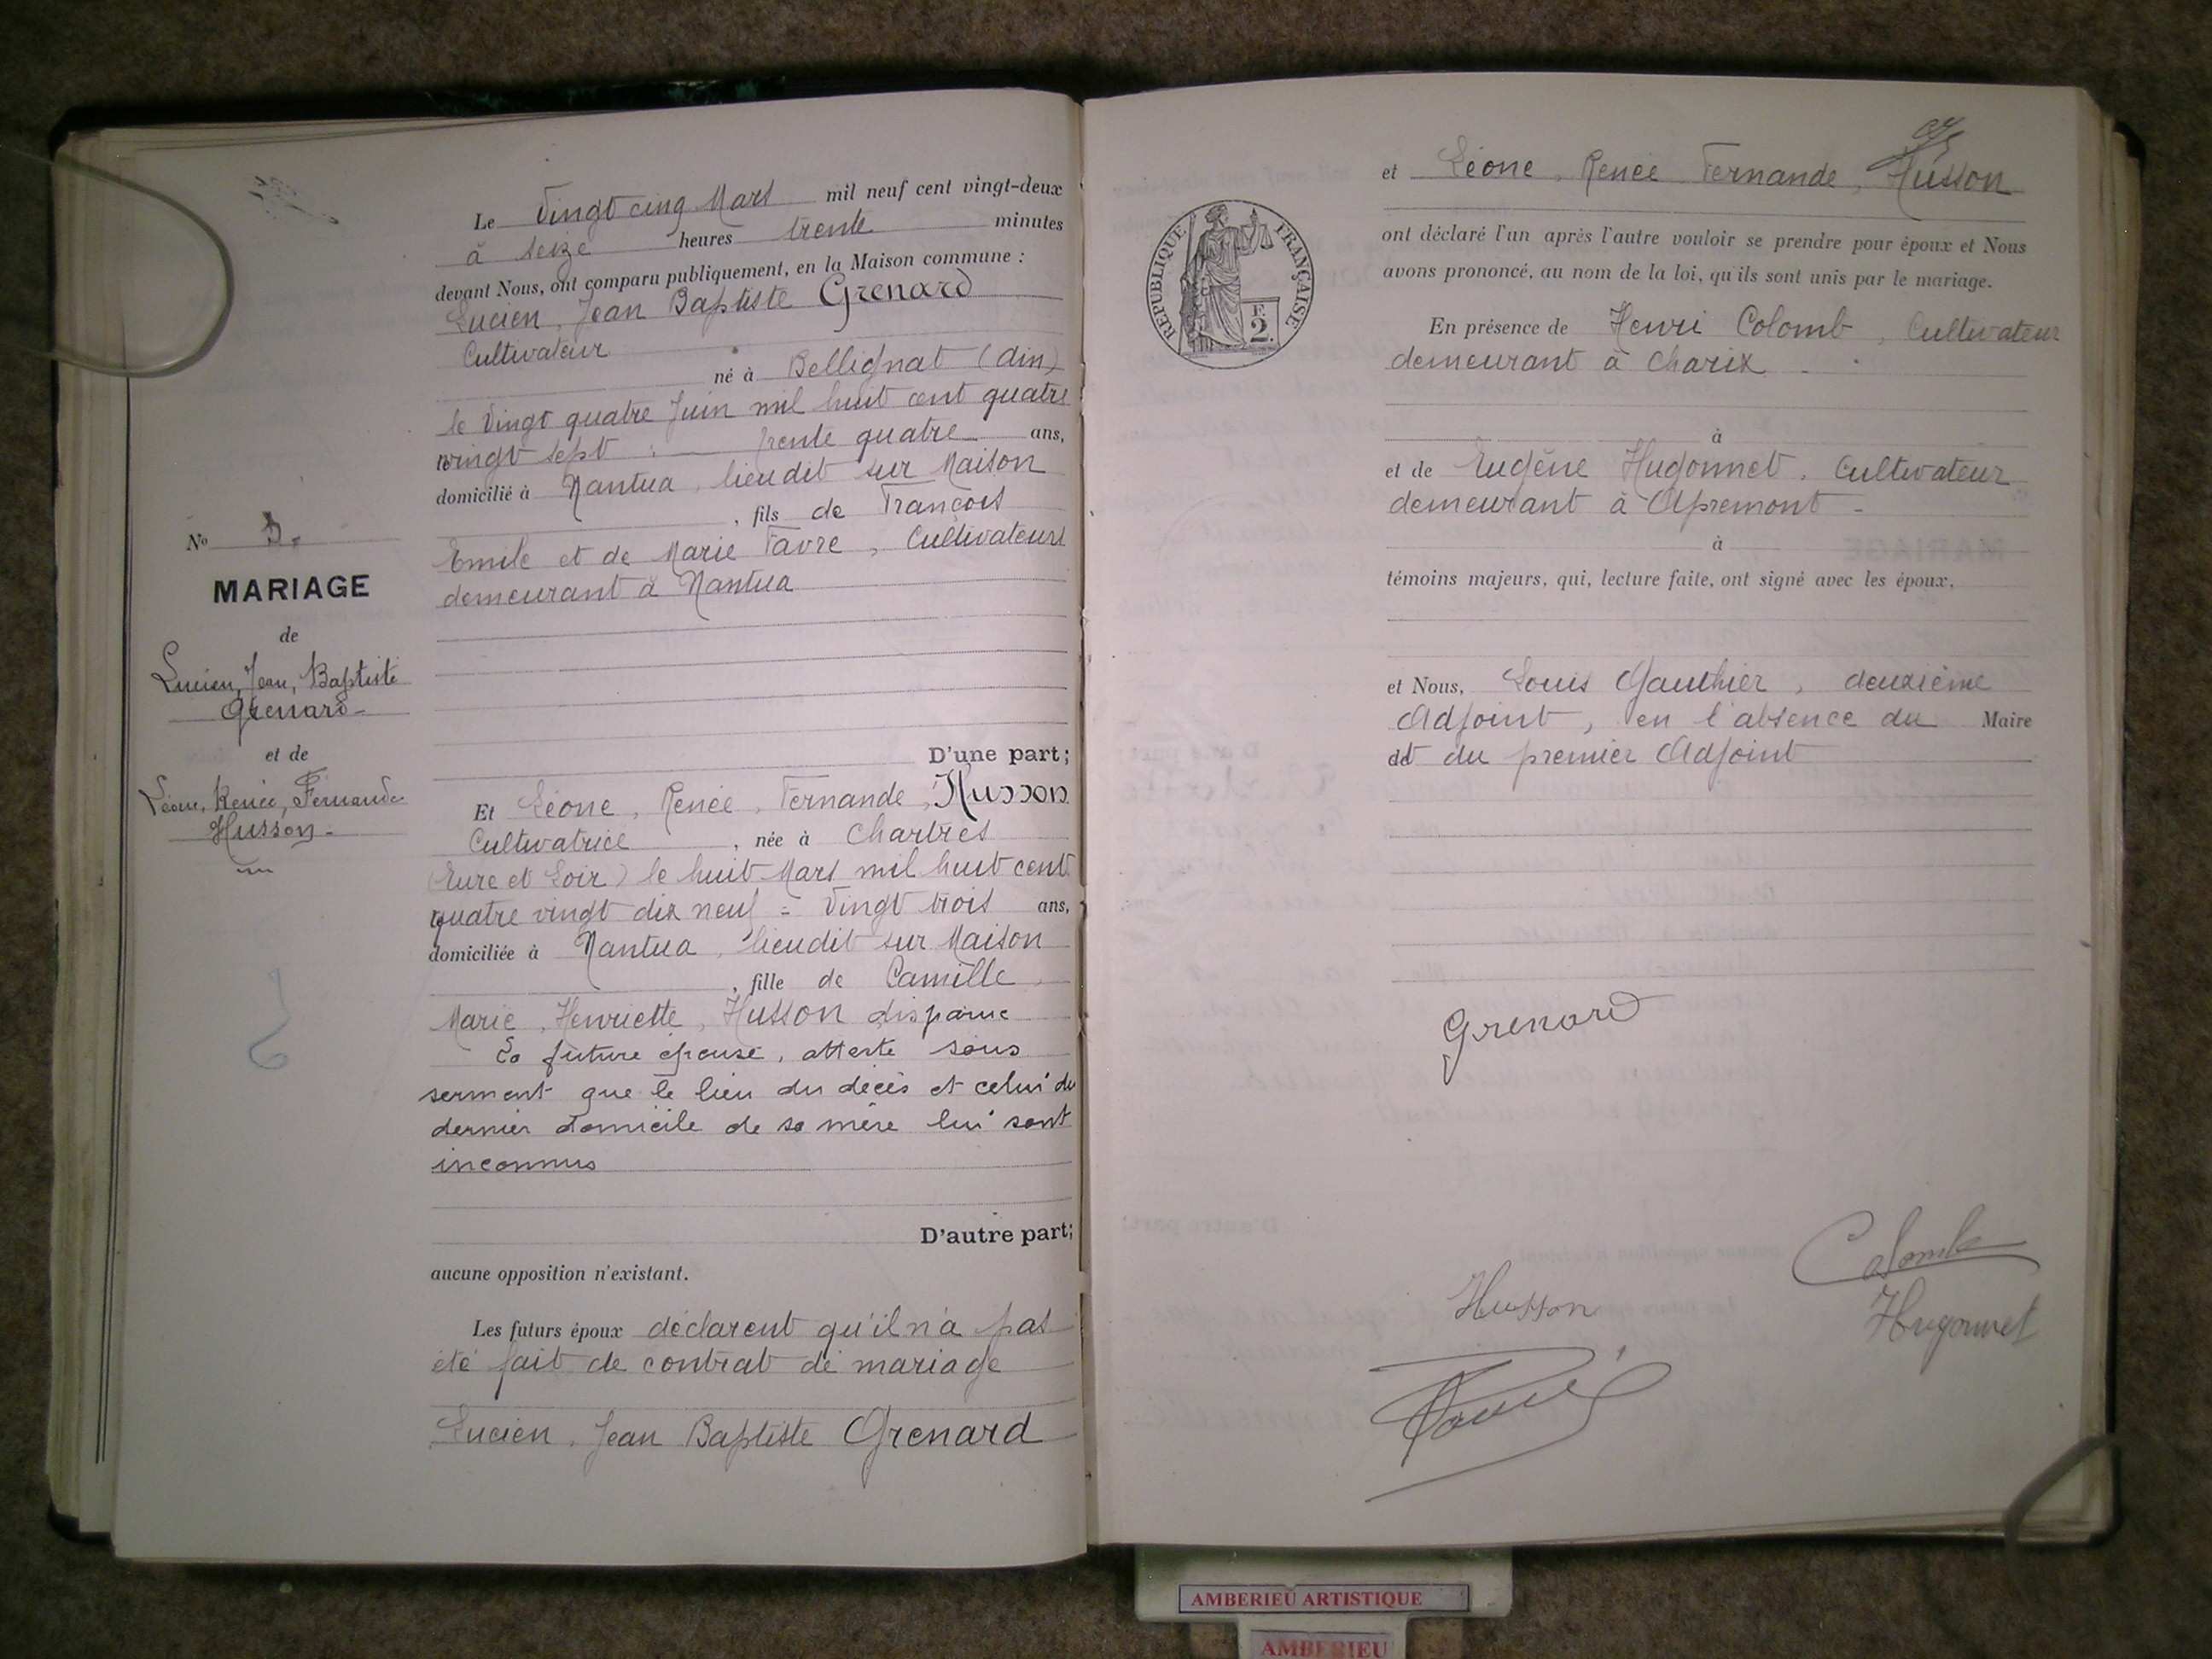 Le Vingt cinq Mars mil neuf cent vingt-deux
à seize heures trente minutes
devant Nous, ont comparu publiquement, en la Maison commune :
Lucien, Jean Baptiste Grenard
Cultivateur
né à Bellignat (Ain)
le Vingt quatre Juin mil huit cent quatre
vingt sept : trente quatre ans,
domicilié à Nantua, lieudit sur Maison
, fils de François
Emile et de Marie Favre, Cultivateurs
demeurant à Nantua
D'une part;
Et Léone, Renée, Fernande, Husson
Cultivatrice, née à Chartres
(Eure et Loir) le huit Mars mil huit cent
quatre vingt dix neuf = Vingt trois ans,
domiciliée à Nantua, lieudit sur Maison
, fille de Camille,
Marie, Henriette, Husson disparue
La future épouse, atteste sous
serment que le lieu du décès et celui du
dernier domicile de sa mère lui sont
inconnus
D'autre part;
aucune opposition n'existant.
Les futurs époux déclarent qu'il n'a pas
été fait de contrat de mariage
Lucien, Jean Baptiste Grenard
No 5.
MARIAGE
de
Lucien, Jean, Baptiste
Grenard-
et de
Léone, Renée, Fernande
Husson-
et Léone, Renée Fernande, Husson
RÉPUBLIQUE FRANÇAISE
F.
2.
ont déclaré l'un après l'autre vouloir se prendre pour époux et Nous
avons prononcé, au nom de la loi, qu'ils sont unis par le mariage.
En présence de Henri Colomb, Cultivateur
demeurant à Charix
à
et de Eugène Hugonnet, Cultivateur
demeurant à Apremont -
à
témoins majeurs, qui, lecture faite, ont signé avec les époux,
et Nous, Louis Gauthier, deuxième
Adjoint, en l'absence du Maire
et du premier Adjoint
Grenard
Colomb
Husson
Hugonnet
AMBERIEU ARTISTIQUE
AMBERIEU